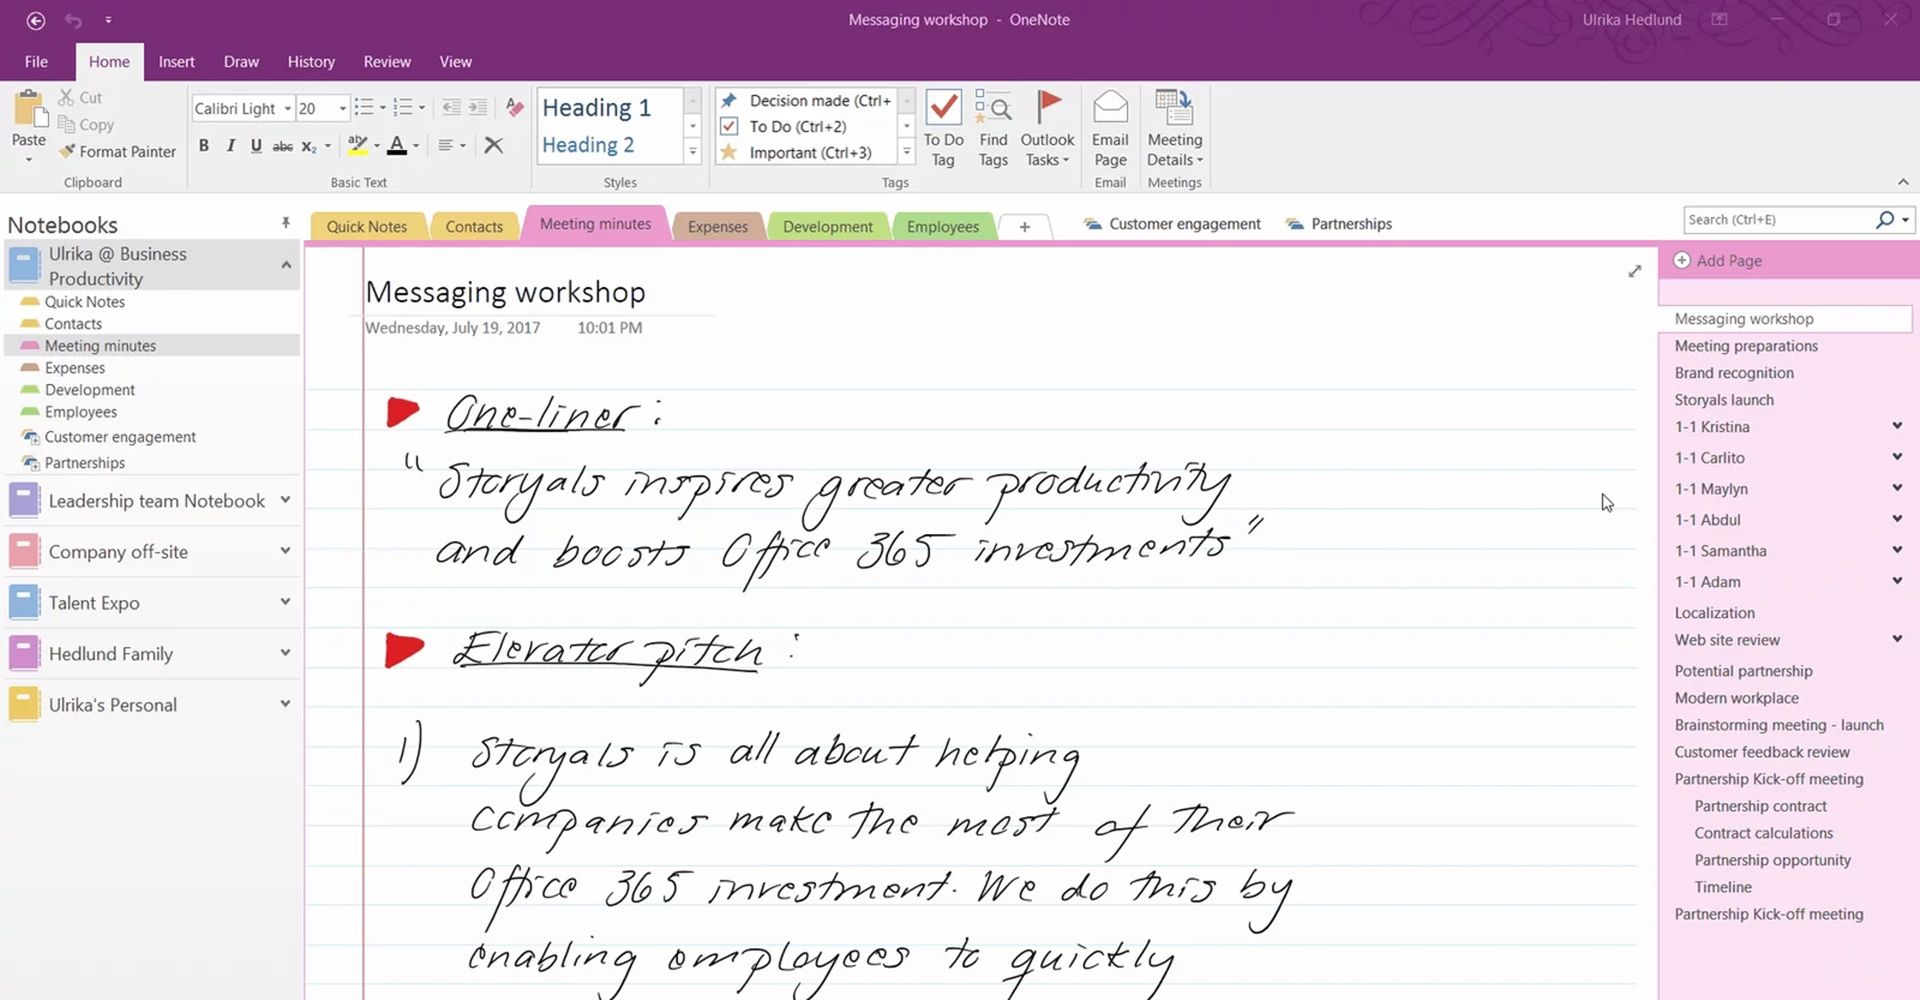 Messaging workshop - OneNote
Ulrika Hedlund
File Home Insert Draw History Review View
Paste
Cut
Copy
Format Painter
Clipboard
Calibri Light 20
B I U abc x₂ A
Basic Text
Heading 1
Heading 2
Styles
Decision made (Ctrl+
To Do (Ctrl+2)
Important (Ctrl+3)
To Do Tag
Find Tags
Tags
Outlook Tasks
Email Page
Email
Meeting Details
Meetings
Notebooks
Ulrika @ Business
Productivity
Quick Notes
Contacts
Meeting minutes
Expenses
Development
Employees
Customer engagement
Partnerships
Leadership team Notebook
Company off-site
Talent Expo
Hedlund Family
Ulrika's Personal
Quick Notes Contacts Meeting minutes Expenses Development Employees + Customer engagement Partnerships
Search (Ctrl+E)
Messaging workshop
Wednesday, July 19, 2017 10:01 PM
One-liner:
"Storyals inspires greater productivity
and boosts Office 365 investments"
Elevator pitch:
1) Storyals is all about helping
companies make the most of their
Office 365 investment. We do this by
enabling employees to quickly
Add Page
Messaging workshop
Meeting preparations
Brand recognition
Storyals launch
1-1 Kristina
1-1 Carlito
1-1 Maylyn
1-1 Abdul
1-1 Samantha
1-1 Adam
Localization
Web site review
Potential partnership
Modern workplace
Brainstorming meeting - launch
Customer feedback review
Partnership Kick-off meeting
Partnership contract
Contract calculations
Partnership opportunity
Timeline
Partnership Kick-off meeting